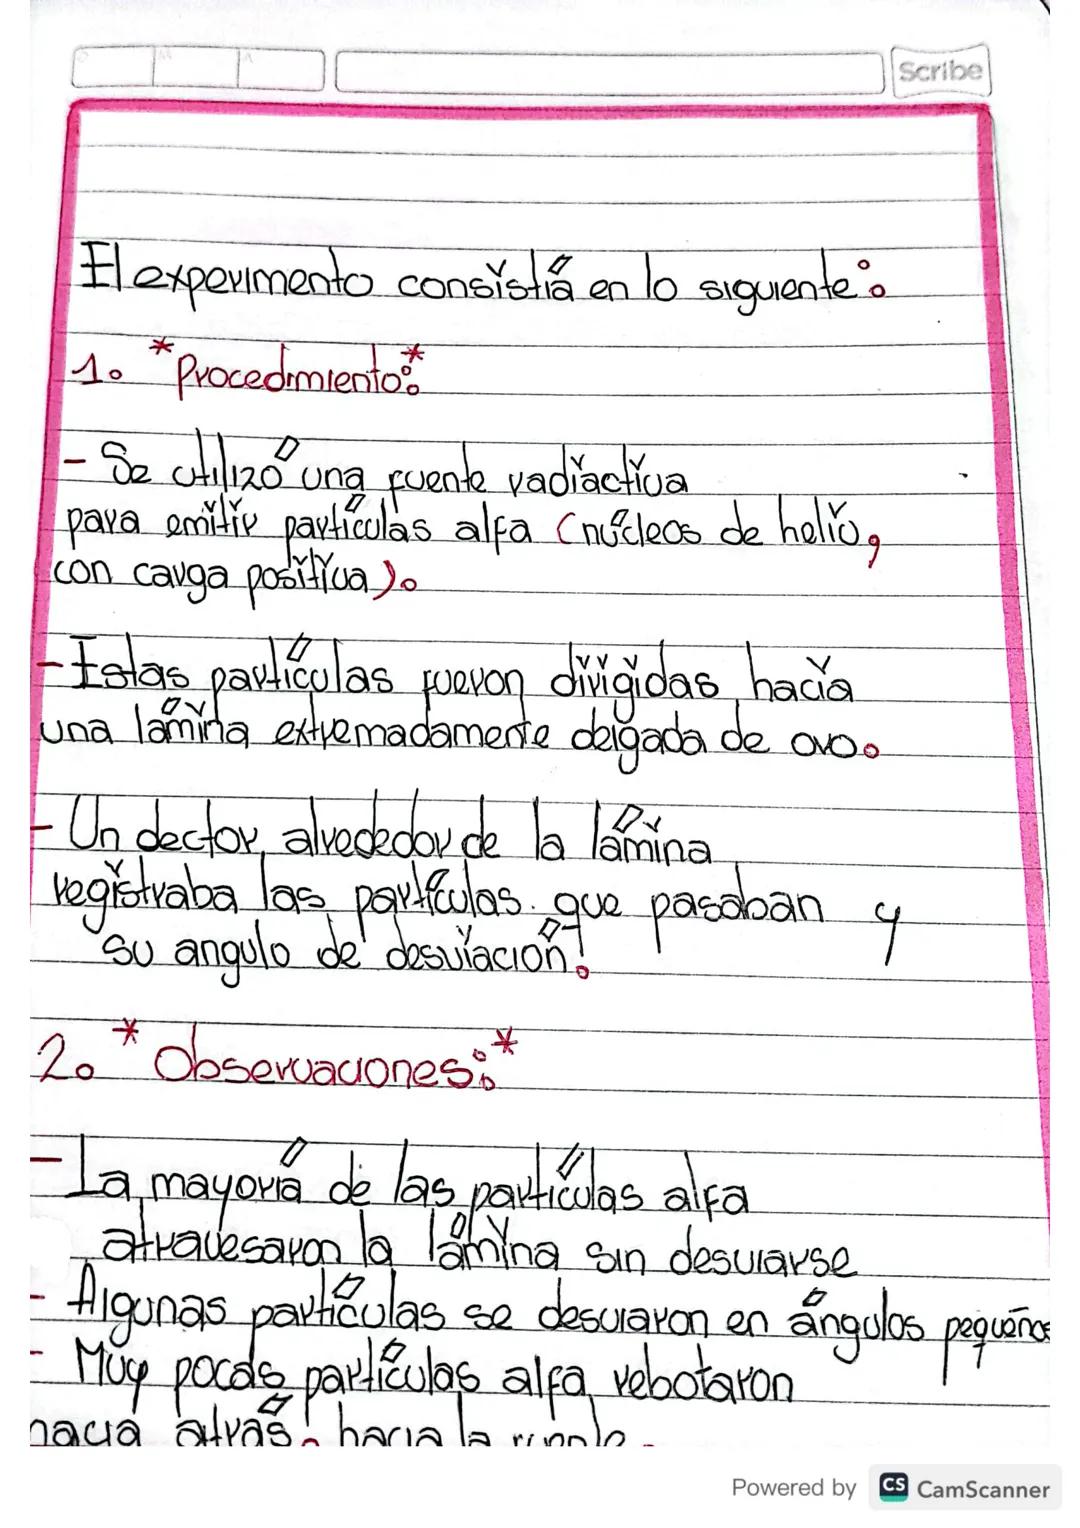 Scribe
El experimento consistía en lo siguiente:
1. *Procedimiento:*
- Se utilizó una fuente radiactiva
para emitir partículas alfa (núcleos de helio,
con carga positiva).
- Estas partículas fueron dirigidas hacia
una lámina extremadamente delgada de oro.
- Un dector alrededor de la lámina
registraba las partículas que pasaban y
su angulo de desviación.
2. *Observaciones:*
- La mayoría de las partículas alfa
atravesaron la lámina sin desviarse
- Algunas partículas se desviaron en ángulos pequeños
- Muy pocas partículas alfa rebotaron
hacia atrás, hacia la fuente.
Powered by CS CamScanner